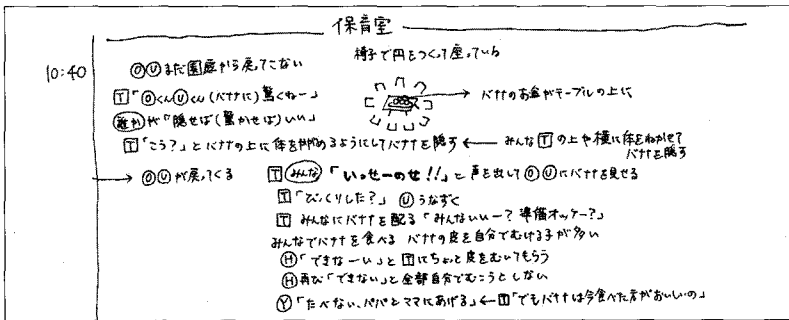 保育室
10:40
ⓄⓊまだ園庭から戻ってこない
椅子で円をつくって座っている
🅃「ⓄくんⓊくん(バナナに)驚くねー」
バナナのお盆がテーブルの上に
誰かが「隠せば(驚かせば)いい」
🅃「こう?」とバナナの上に体を斜めるようにしてバナナを隠す ← みんな🅃の上や横に体をねかせて
バナナを隠す
→ ⓄⓊが戻ってくる 🅃みんな「いっせーのせ!!」と声を出してⓄⓊにバナナを見せる
🅃「びっくりした?」 Ⓤうなずく
🅃 みんなにバナナを配る「みんないいー? 準備オッケー?」
みんなでバナナを食べる バナナの皮を自分でむける子が多い
Ⓗ「できなーい」と🅃にちょっと皮をむいてもらう
Ⓗ再び「できない」と全部自分でむこうとしない
Ⓨ「たべない、パパとママにあげる」←🅃「でもバナナは今食べた方がおいしいの」